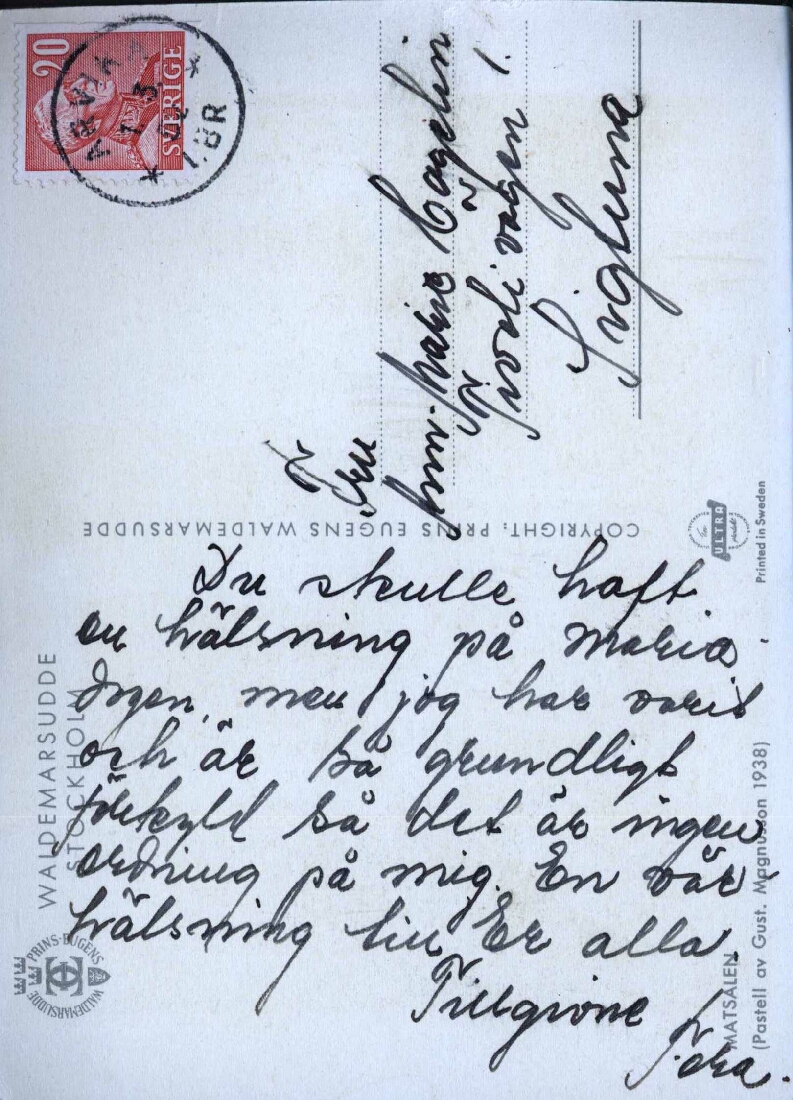 20
SVERIGE
ARVIKA
1. 3.
LBR
Fru
Ann-Marie Hagelin
Tivolivägen 1.
Sigtuna
COPYRIGHT: PRINS EUGENS WALDEMARSUDDE
ULTRA
Printed in Sweden
Du skulle haft
en hälsning på Maria
dagen, men jag har varit
och är så grundligt
förkyld så det är ingen
ordning på mig. En vår-
hälsning till Er alla
Tillgivne
WALDEMARSUDDE
STOCKHOLM
PRINS EUGENS
WALDEMARSUDDE
MATSALEN
(Pastell av Gust. Magnusson 1938)